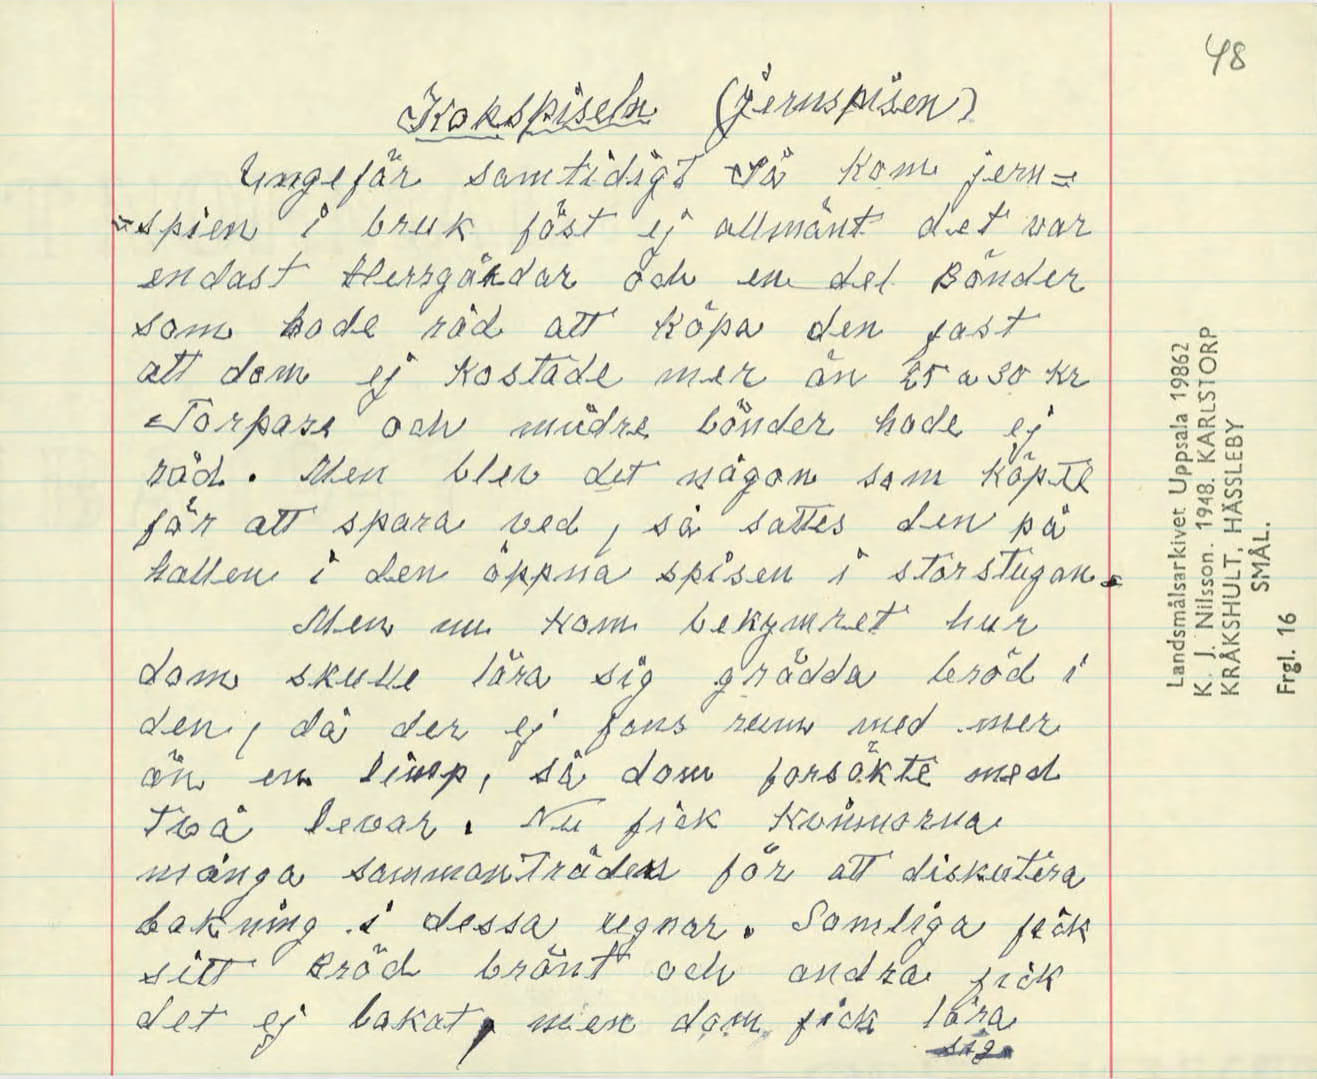 48
Kokspiseln (jernspisen)
Ungefär samtidigt så kom jern=
=spien i bruk fast ej allmänt det var
endast Herrgårdar och en del Bönder
som hade råd att köpa den fast
att dom ej kostade mer än 25 a 30 kr
Torpare och mindre bönder hade ej
råd. Men blev det någon som köpte
för att spara ved, så sattes den på
hallen i den öppna spisen i storstugan.
Men nu kom bekymret hur
dom skulle lära sig grädda bröd i
den, då der ej fans rum med mer
än en limp, så dom forsökte med
två levar. Nu fick kvinnorna
många sammanträden för att diskutera
bakning i dessa ugnar. Somliga fick
sitt bröd bränt och andra fick
det ej bakat, men dom fick lära
sig
Landsmålsarkivet Uppsala 19862
K. J. Nilsson. 1948. KARLSTORP
KRÅKSHULT, HÄSSLEBY
SMÅL.
Frgl. 16